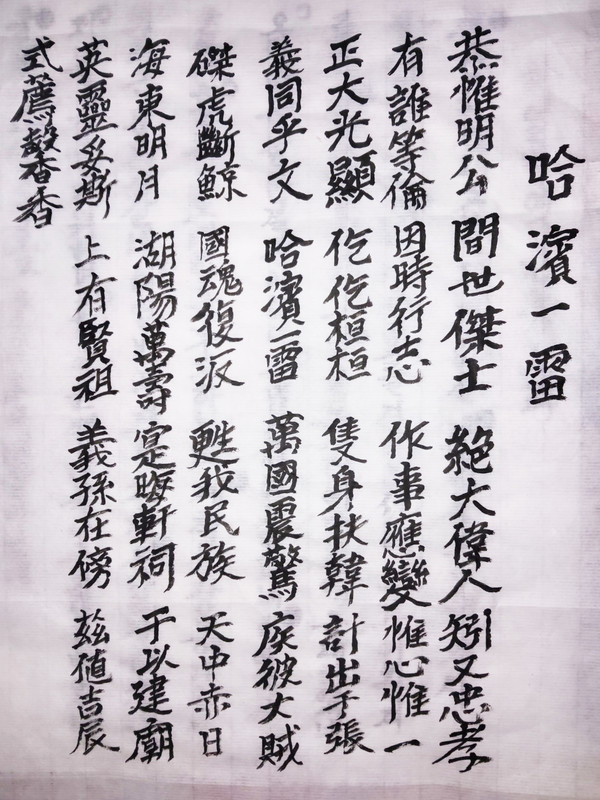 哈濱一雷
恭惟明公 間世傑士 絶大偉人 矧又忠孝
有誰等倫 因時行志 作事應變 惟心惟一
正大光顯 仡仡桓桓 隻身扶韓 計出于張
義同乎文 哈濱一雷 萬國震驚 疾彼大賊
磔虎斷鯨 國魂復返 甦我民族 天中赤日
海東明月 湖陽萬壽 寔晦軒祠 于以建廟
英靈妥斯 上有賢祖 義孫在傍 玆値吉辰
式薦馨香